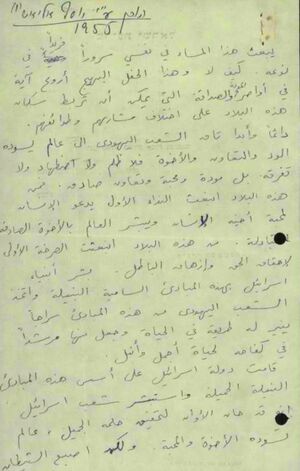 1955
يبعث هذا المساء في نفسي سروراً فريداً في
نوعه. كيف لا وهذا الحفل البهيج أروع آية
في أواصر الصداقة التي يمكن أن تربط سكان
هذه البلاد على اختلاف مشاربهم وطوائفهم.
دائماً وأبدا تاق الشعب اليهودي الى عالم يسوده
الود والتعاون والأخوة فلا ظلم ولا اضطهاد ولا
تفرقة. بل مودة ومحبة وتعاون صادق. من
هذه البلاد انبعث النداء الأول يدعو الإنسان
لمحبة أخيه الإنسان ويبشر العالم بالأخوة الصادقة
من هذه البلاد انبعثت الصرخة الأولى
لإحقاق الحق وإزهاق الباطل. بشر أنبياء
اسرائيل بهذه المبادئ السامية النبيلة واتخذ
الشعب اليهودي من هذه المبادئ سراجاً
ينير له طريقه في الحياة وجعل منها مرشداً
في كفاحه لحياة أجمل وأنبل.
قامت دولة اسرائيل على أسس هذه المبادئ
النبيلة الجميلة واستبشر شعب اسرائيل
قد حان الأوان لتحقيق حلمه الجميل، عالم
تسوده الأخوة والمحبة. ولكن اصبع الشيطان